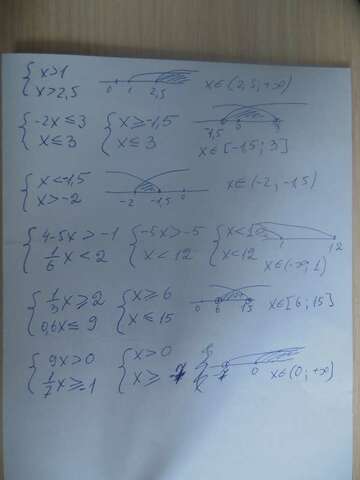 { x>1
x>2,5   0 1 2,5   x∈(2,5; +∞)
{ -2x≤3
x≤3   { x≥-1,5
x≤3   -1,5 0 3
x∈[-1,5; 3]
{ x<-1,5
x>-2   -2 -1,5 0   x∈(-2; -1,5)
{ 4-5x>-1
1/6x<2   { -5x>-5
x<12   { x<1
x<12   1 12
x∈(-∞; 1)
{ 1/3x≥2
0,6x≤9   { x≥6
x≤15   0 6 15   x∈[6; 15]
{ 9x>0
1/7x≥-1   { x>0
x≥-7   -7 0   x∈(0; +∞)